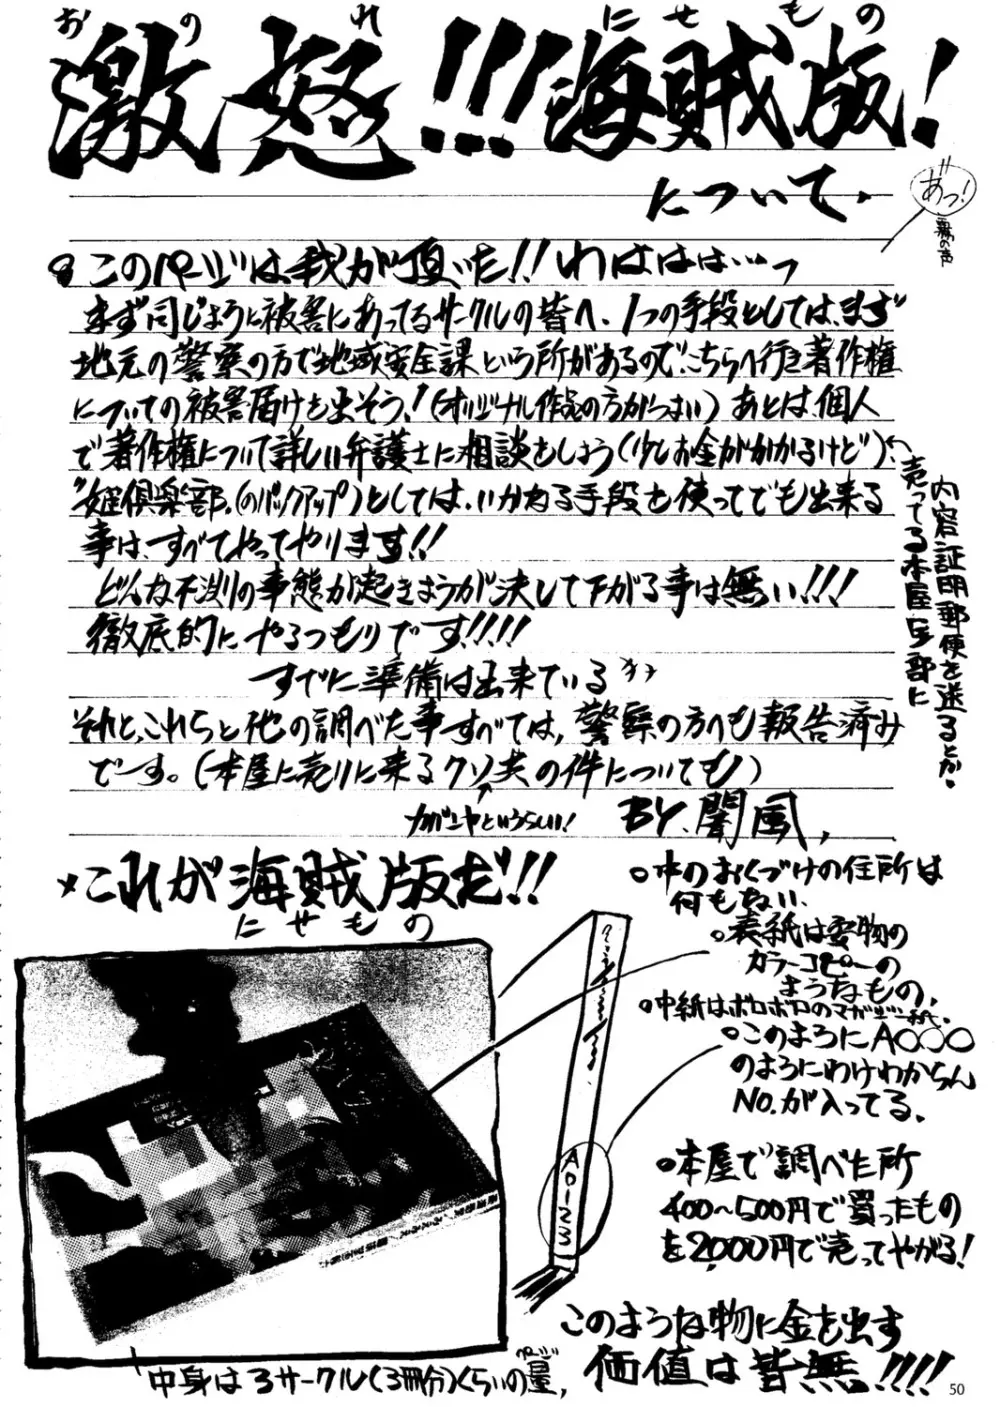 おのれ
にせもの
激怒!!!海賊版!
について.
あっ!
霧の声
このページは我が頂いた!!わははは…っ
まず同じように被害にあってるサークルの皆へ、1つの手段としては、まず
地元の警察の方で地域安全課という所があるので、こちらへ行き著作権
についての被害届けを出そう!(オリジナル作品の方がつよい)あとは、個人
で著作権について詳しい弁護士に相談をしよう(少しお金がかかるけど)。
"姫倶楽部"(のバックアップ)としては、いかなる手段を使ってでも出来る
事は、すべてやってやります!!
どんな不測の事態が起きようが決して下がる事は無い!!!
徹底的にやるつもりです!!!!
すでに準備は出来ている
それと、これらと他の調べた事すべては、警察の方へも報告済み
でーす。(本屋に売りに来るクソ共の件についても)
BY.闇風,
内容証明郵便を送るとか.
売ってる本屋全部に
×これが海賊版だ!!
にせもの
中のおくづけの住所は
何もない、
表紙は安物の
カラーコピーの
ようなもの、
中紙はボロボロのマガジン
このようにA○○○
のようにわけわからん
NO.が入ってる.
A0123
本屋で調べた所
400〜500円で買ったもの
を2,000円で売ってやがる!
このような物に金を出す
価値は皆無!!!!
中身は3サークル(3冊分)くらいの量,
ページ
50